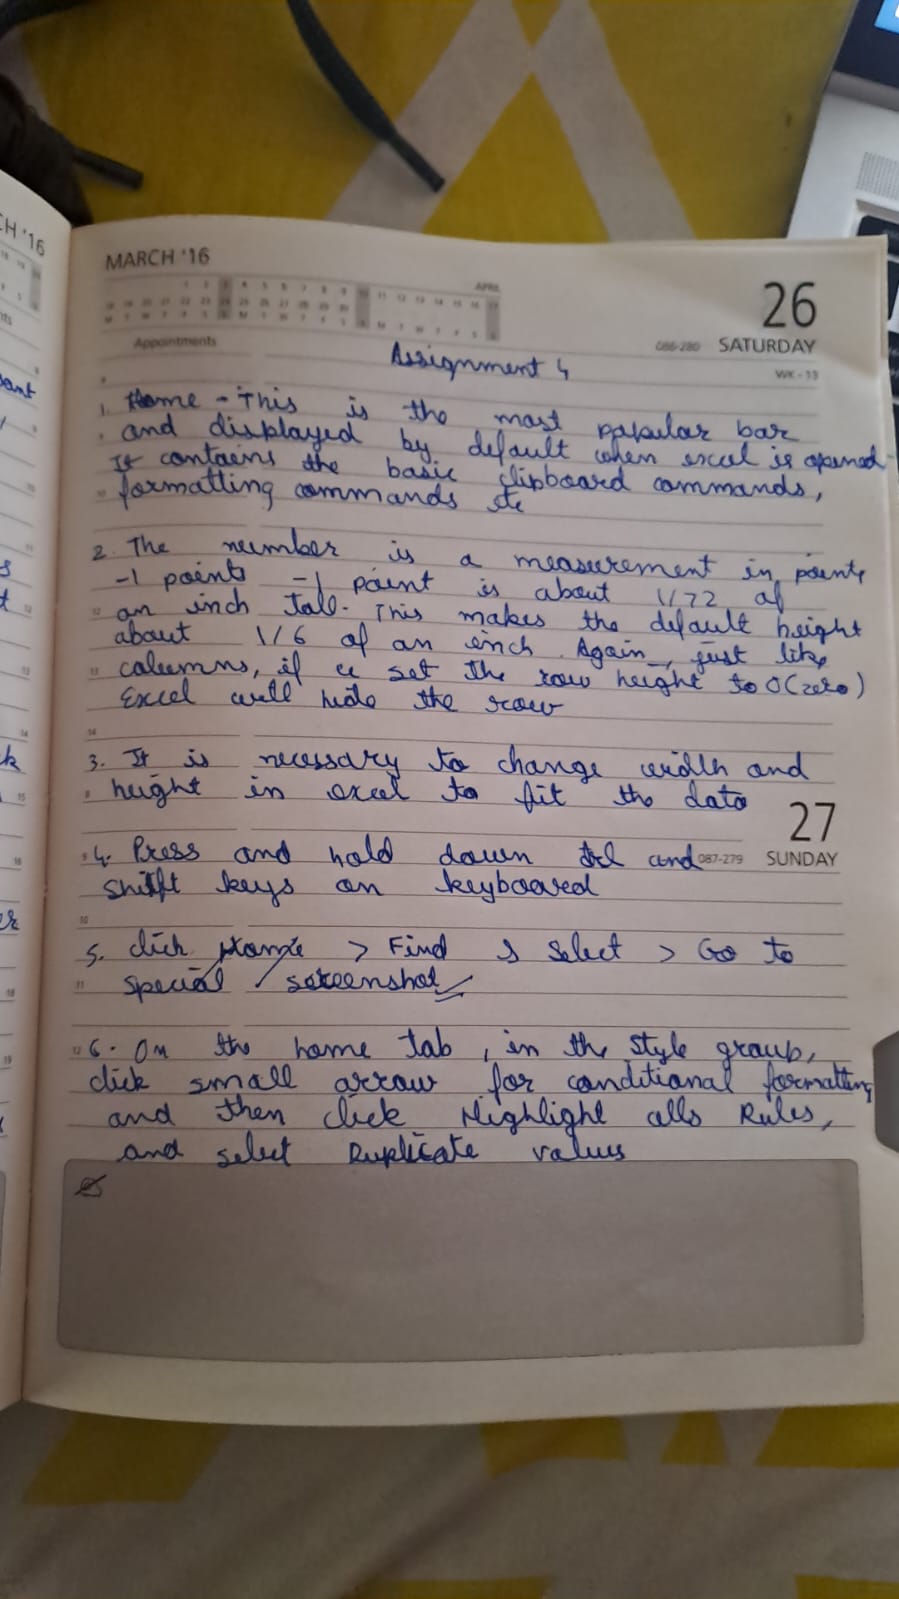 CH '16
MARCH '16
APRIL
26
086-280 SATURDAY
WK - 13
Appointments
Assignment 4
1. Home - This is the most papular bar
and displayed by default when excel is opened
It contains the basic clipboard commands,
formatting commands etc
2. The number is a measurement in points
-1 points -1 point is about 1/72 of
an inch Tall. This makes the default height
about 1/6 of an inch. Again, just like
columns, if u set the row height to 0 (zero)
Excel will hide the row
3. It is necessary to change width and
height in excel to fit the data
27
087-279 SUNDAY
4. Press and hold down ctrl and
Shift keys on keyboard
5. click Home > Find & Select > Go To
Special / screenshot
6. On the home tab, in the style group,
click small arrow for conditional formatting
and then click Highlight cells Rules,
and select Duplicate values